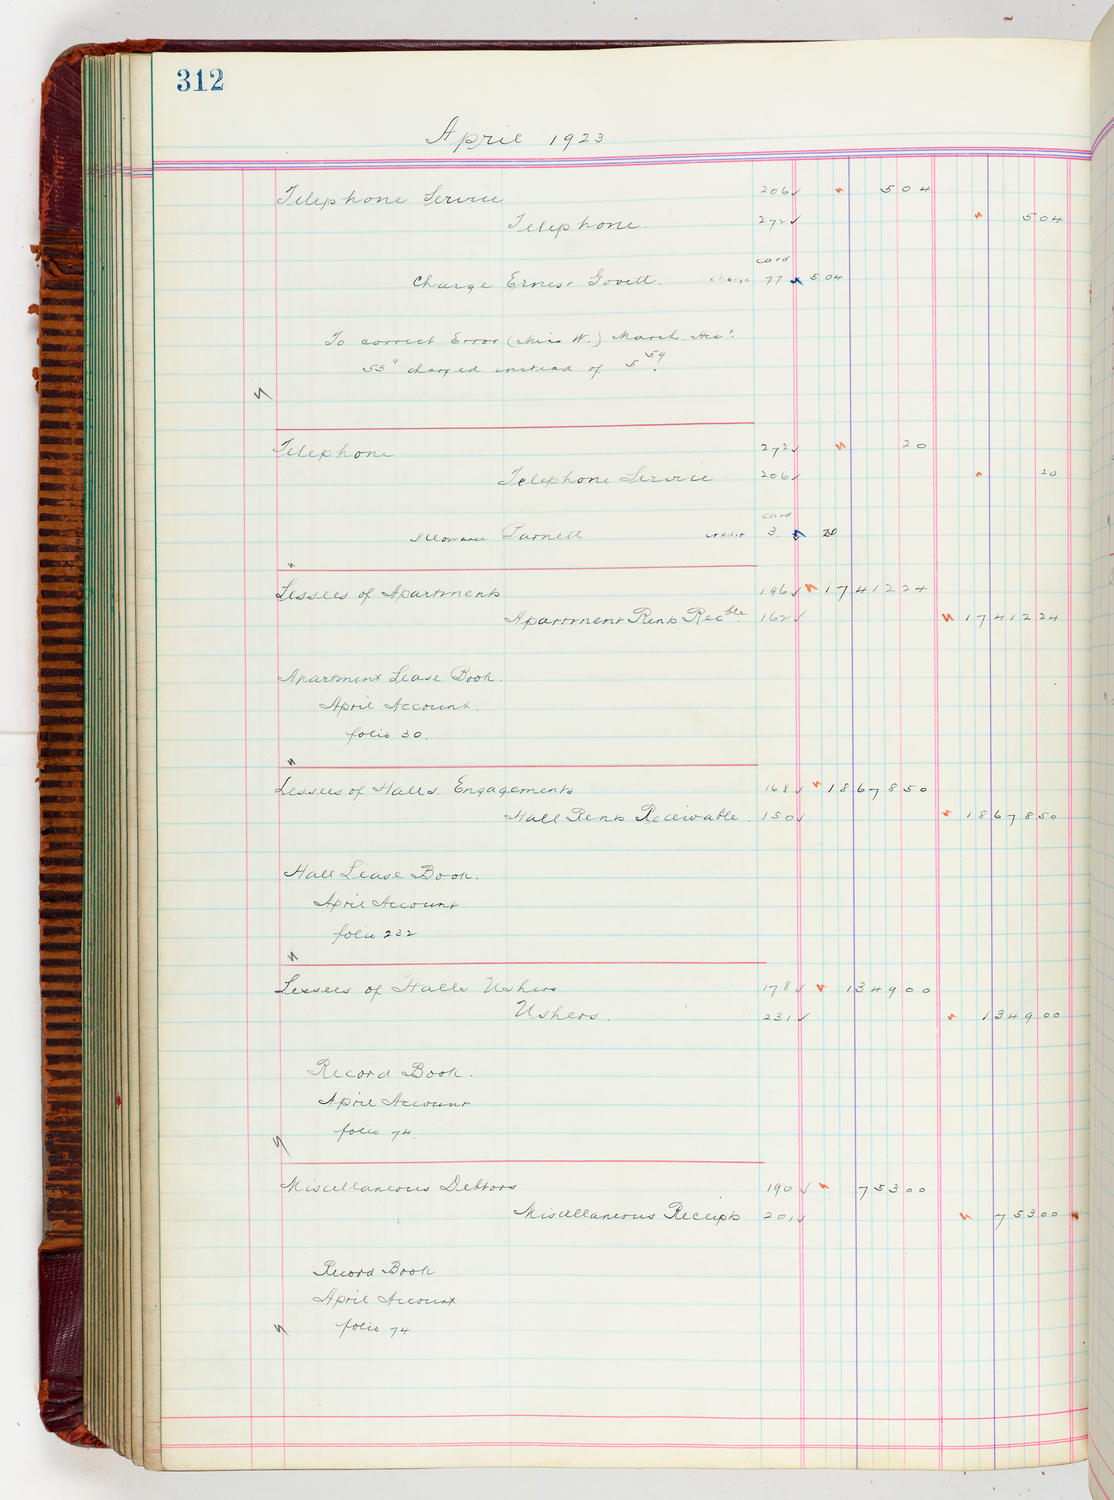 312
April 1923
Telephone Service 206✓ 504
Telephone. 272✓ 504
card
Charge Ernest Govett. charge 77 5.04
To correct Error (Miss W.) March Acct.
55¢ charged instead of 5 59.
Telephone 272✓ 20
Telephone Service 206✓ 20
card
Allowance Parnett credit 3. 20
Lessees of Apartments 196✓ 1741224
Apartment Rents Recble. 162✓ 1741224
Apartment Lease Book.
April Account.
folio 30.
Lessees of Halls. Engagements 168✓ 1867850
Hall Rents Receivable. 150✓ 1867850
Hall Lease Book.
April Account
folio 232
Lessees of Halls Ushers 178✓ 134900
Ushers. 231✓ 134900
Record Book.
April Account
folio 74.
Miscellaneous Debtors 190✓ 75300
Miscellaneous Receipts 201✓ 75300
Record Book
April Account
folio 74